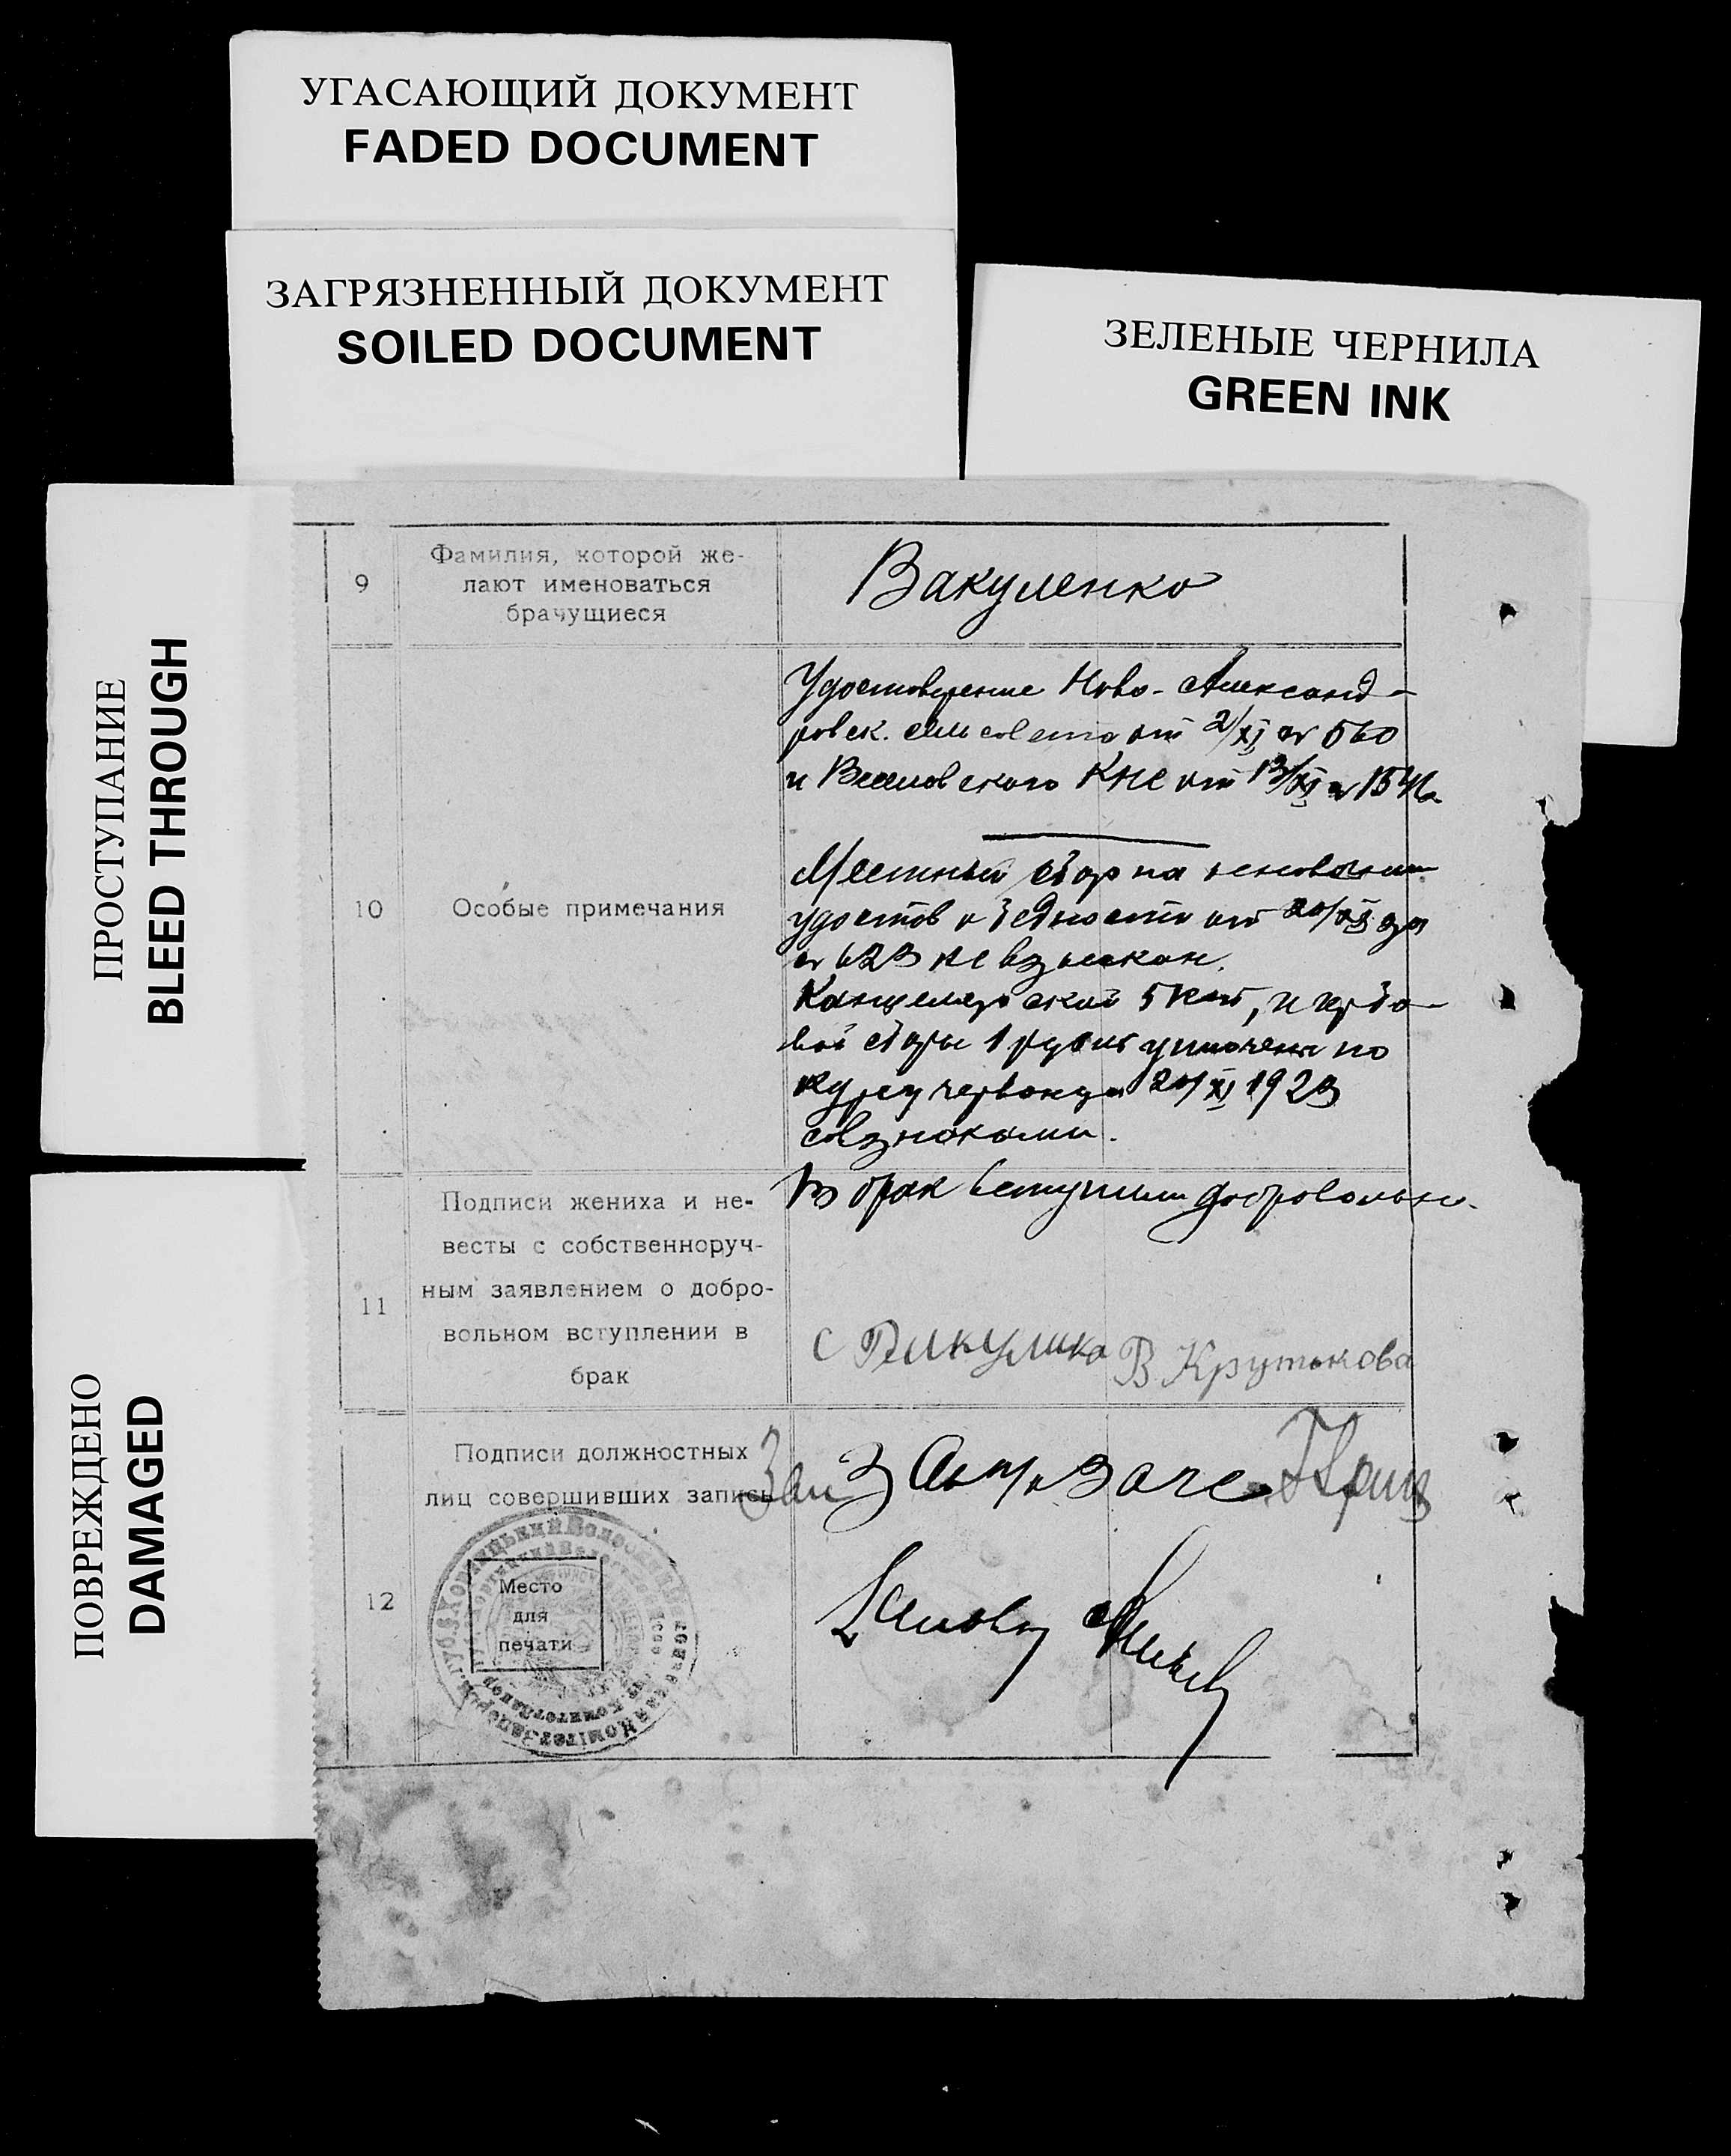 УГАСАЮЩИЙ ДОКУМЕНТ
FADED DOCUMENT
ЗАГРЯЗНЕННЫЙ ДОКУМЕНТ
SOILED DOCUMENT
ЗЕЛЕНЫЕ ЧЕРНИЛА
GREEN INK
ПРОСТУПАНИЕ
BLEED THROUGH
ПОВРЕЖДЕНО
DAMAGED
9
Фамилия, которой же-
лают именоваться
брачущиеся
Вакуленко
10
Особые примечания
Удостоверение Ново-Александ-
ровск. сельсовета от 2/XI № 560
и Веселовского КНС от 13/XI №
Местный сбор на основании
удостов о бедности от 20/XI
№ 623 не взыскан.
Канцелярский 5 коп, и гербо-
вой сборы 1 рубль уплочены по
курсу червонца 20/XI 1923
совзнаками.
11
Подписи жениха и не-
весты с собственноруч-
ным заявлением о добро-
вольном вступлении в
брак
В брак вступили добровольно.
В Крутькова
12
Подписи должностных
лиц совершивших запись
Место
для
печати